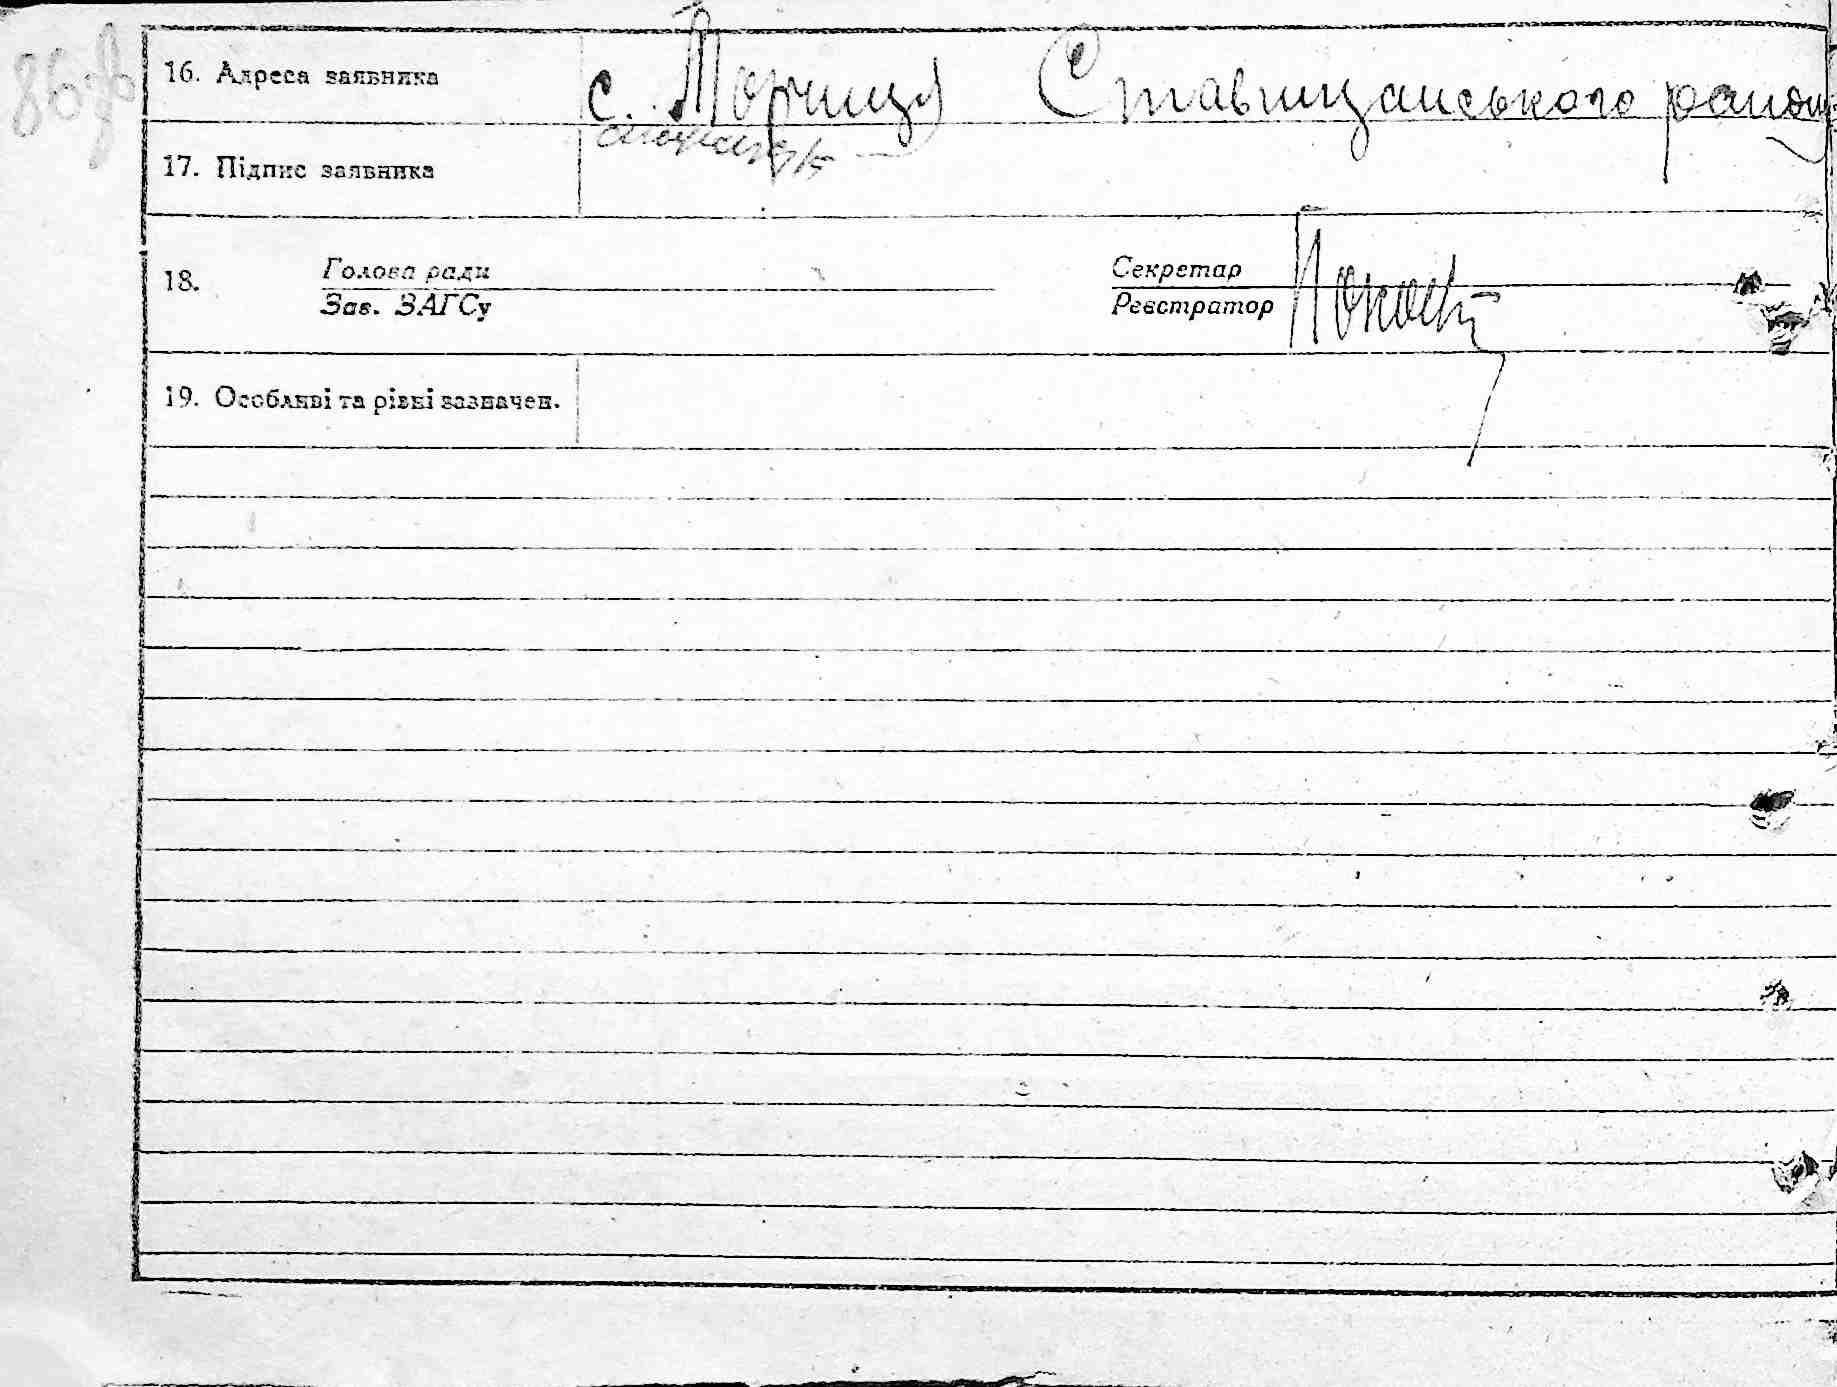 86 зв
16. Адреса заявника с. Торчиця Ставищанського району
17. Підпис заявника
18. Голова ради Секретар
Зав. ЗАГСу Реєстратор
19. Особливі та різні зазначен.